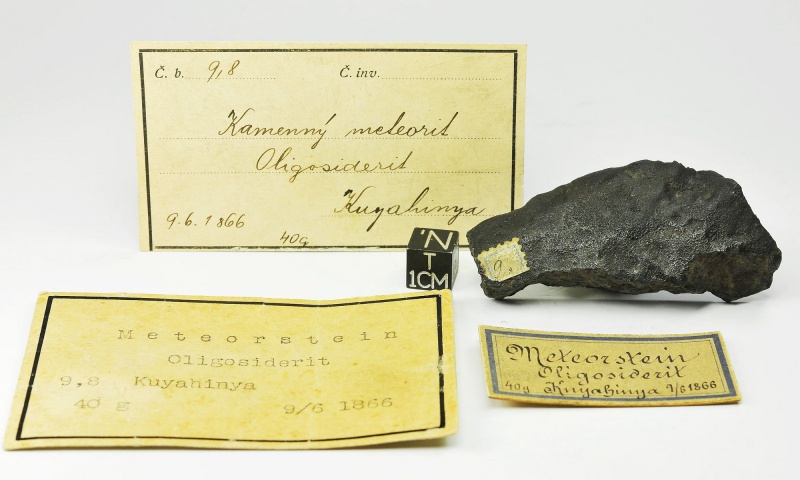 Č. b. 9,8 Č. inv.
Kamenný meteorit
Oligosiderit
Kuyahinya
9.6.1866
40g
N
T
1CM
9.
Meteorstein
Oligosiderit
9,8 Kuyahinya
40 g 9/6 1866
Meteorstein
Oligosiderit
40g Knyahinya 9/6 1866